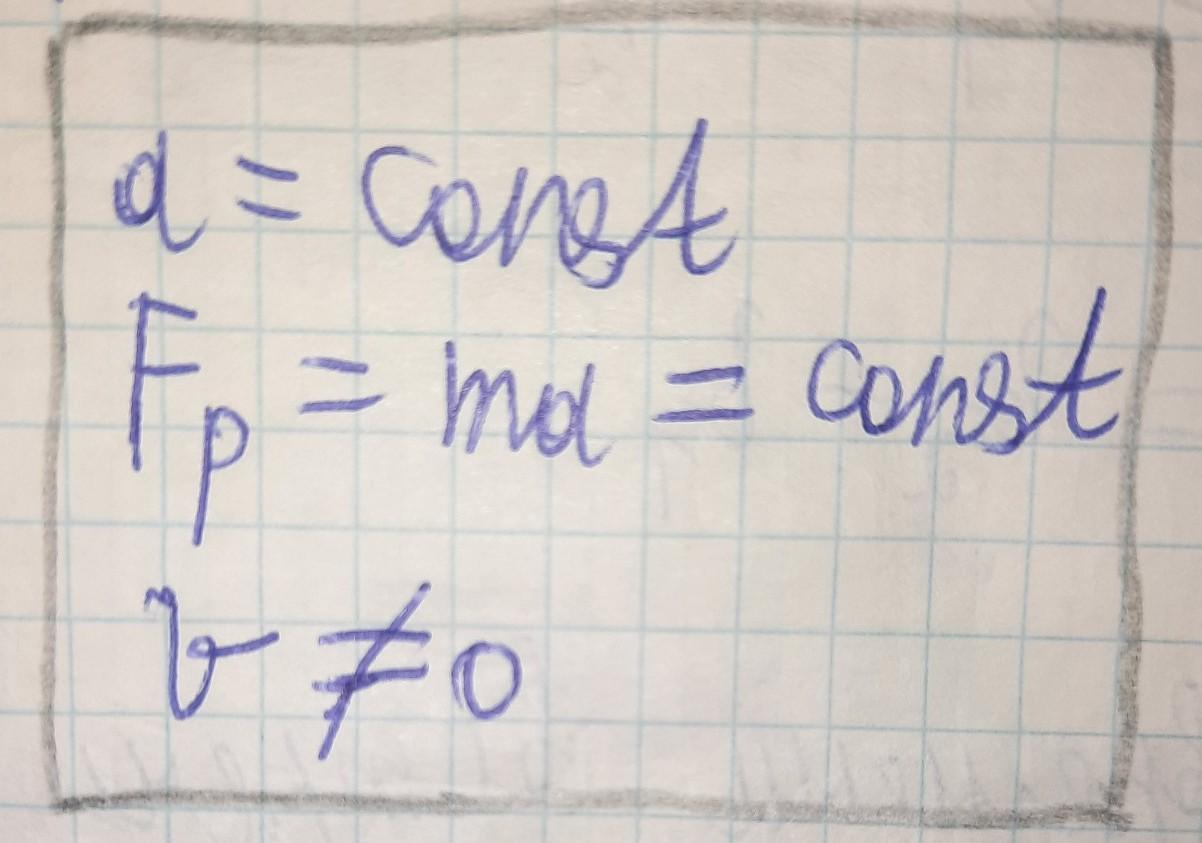 a = const
Fp = ma = const
v ≠ 0